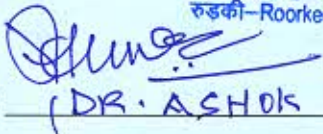 रुडकी–Roorke
(DR. ASHOK